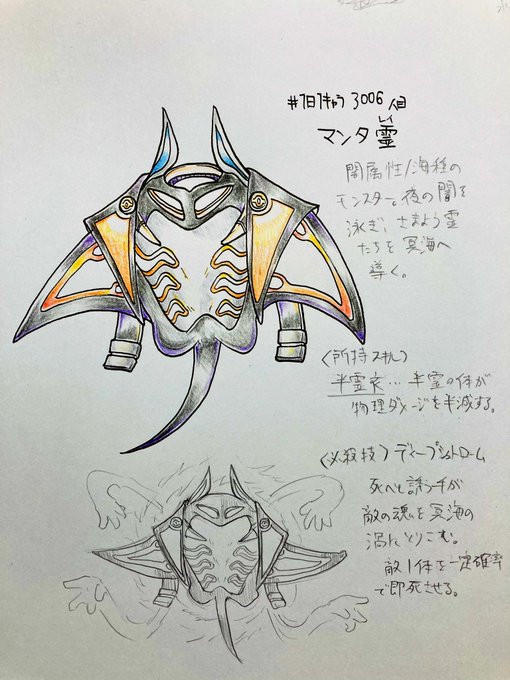 #1日1キャラ 3006人目
マンタ霊
レイ
闇属性/海種の
モンスター。夜の闇を
泳ぎ、さまよう霊
たちを冥海へ
導く。
〈所持スキル〉
半霊衣…半霊の体が
物理ダメージを半減する。
〈必殺技〉ディープストローム
死へと誘う手が
敵の魂を冥海の
渦にとりこむ。
敵1体を一定確率
で即死させる。